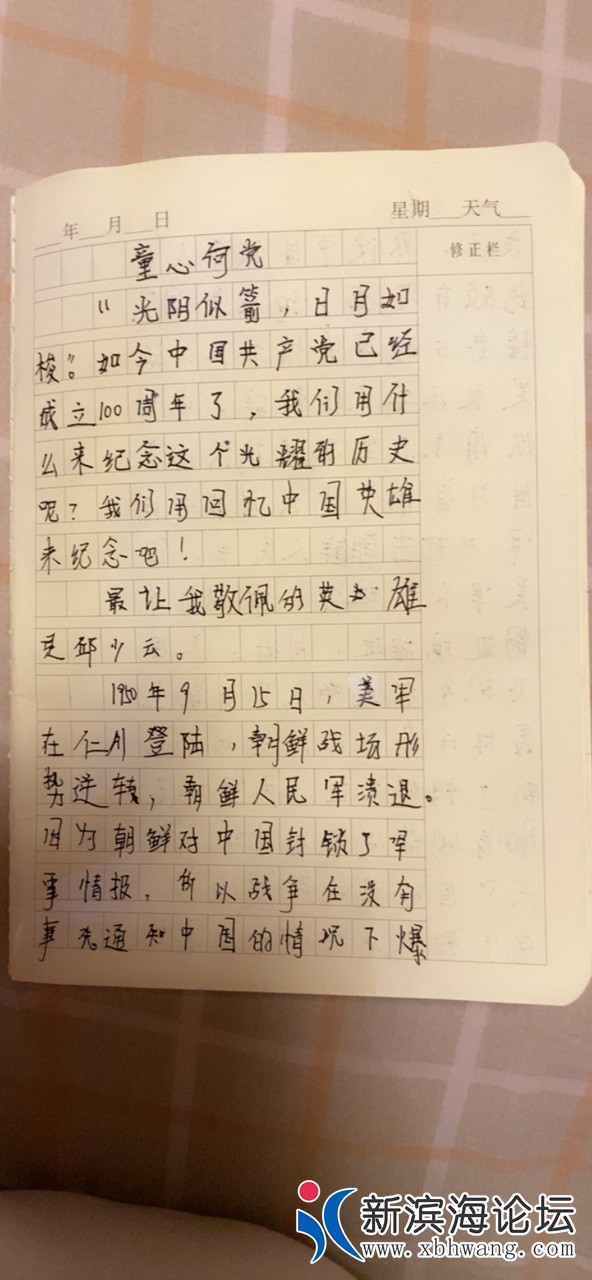 年 月 日 星期 天气
修正栏
童心何党
“光阴似箭，日月如
梭”。如今中国共产党已经
成立100周年了，我们用什
么来纪念这个光耀的历史
呢？我们用回忆中国英雄
来纪念吧！
最让我敬佩的英雄
是邱少云。
1950年9月15日，美军
在仁川登陆，朝鲜战场形
势逆转，朝鲜人民军溃退。
因为朝鲜对中国封锁了军
事情报，所以战争在没有
事先通知中国的情况下爆
新滨海论坛
www.xbhwang.com